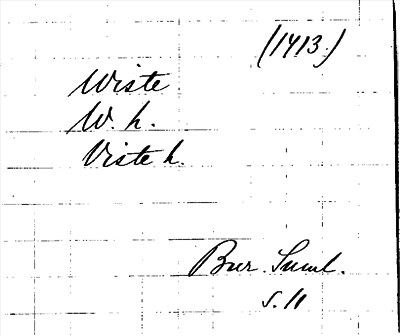 (1413.)
Wiste
W. h.
Viste h.
Bur. Suml.
s. 11